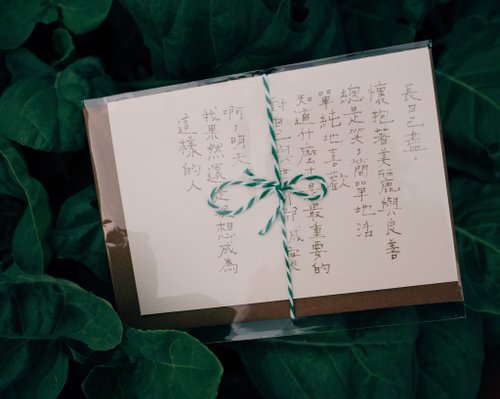 長日已盡。
懷抱著美麗與良善
總是笑，簡單地活
單純地喜歡
知道什麼才是最重要的
對自己與世界都誠實
啊，明天
我果然還是想成為
這樣的人